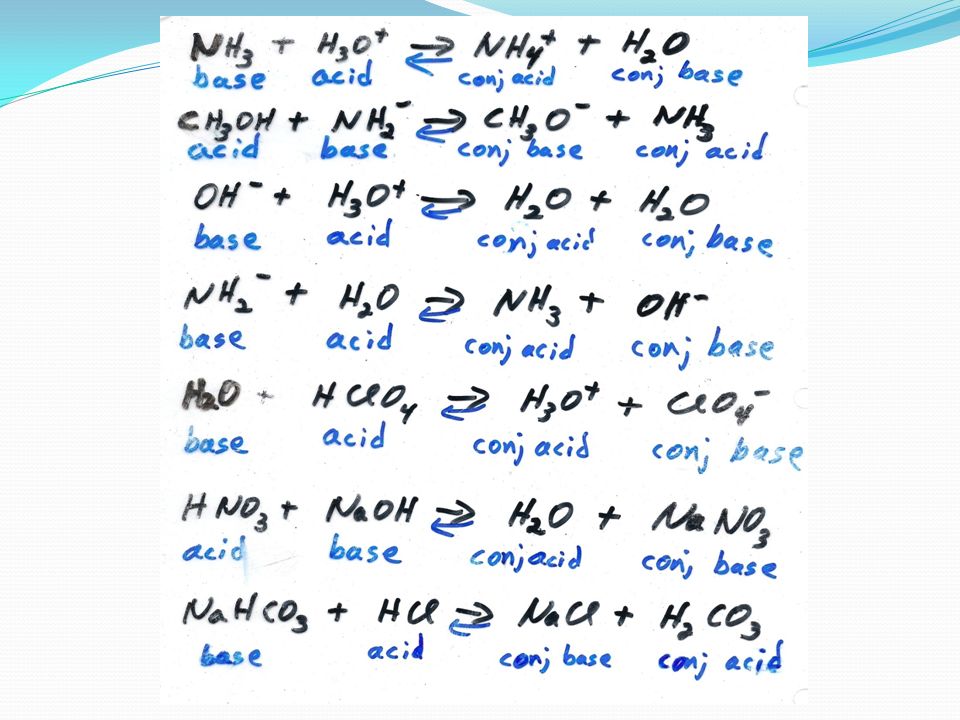 NH₃ + H₃O⁺ ⇌ NH₄⁺ + H₂O
base acid conj acid conj base
CH₃OH + NH₂⁻ ⇌ CH₃O⁻ + NH₃
acid base conj base conj acid
OH⁻ + H₃O⁺ ⇌ H₂O + H₂O
base acid conj acid conj base
NH₂⁻ + H₂O ⇌ NH₃ + OH⁻
base acid conj acid conj base
H₂O + HClO₄ ⇌ H₃O⁺ + ClO₄⁻
base acid conj acid conj base
HNO₃ + NaOH ⇌ H₂O + NaNO₃
acid base conj acid conj base
NaHCO₃ + HCl ⇌ NaCl + H₂CO₃
base acid conj base conj acid